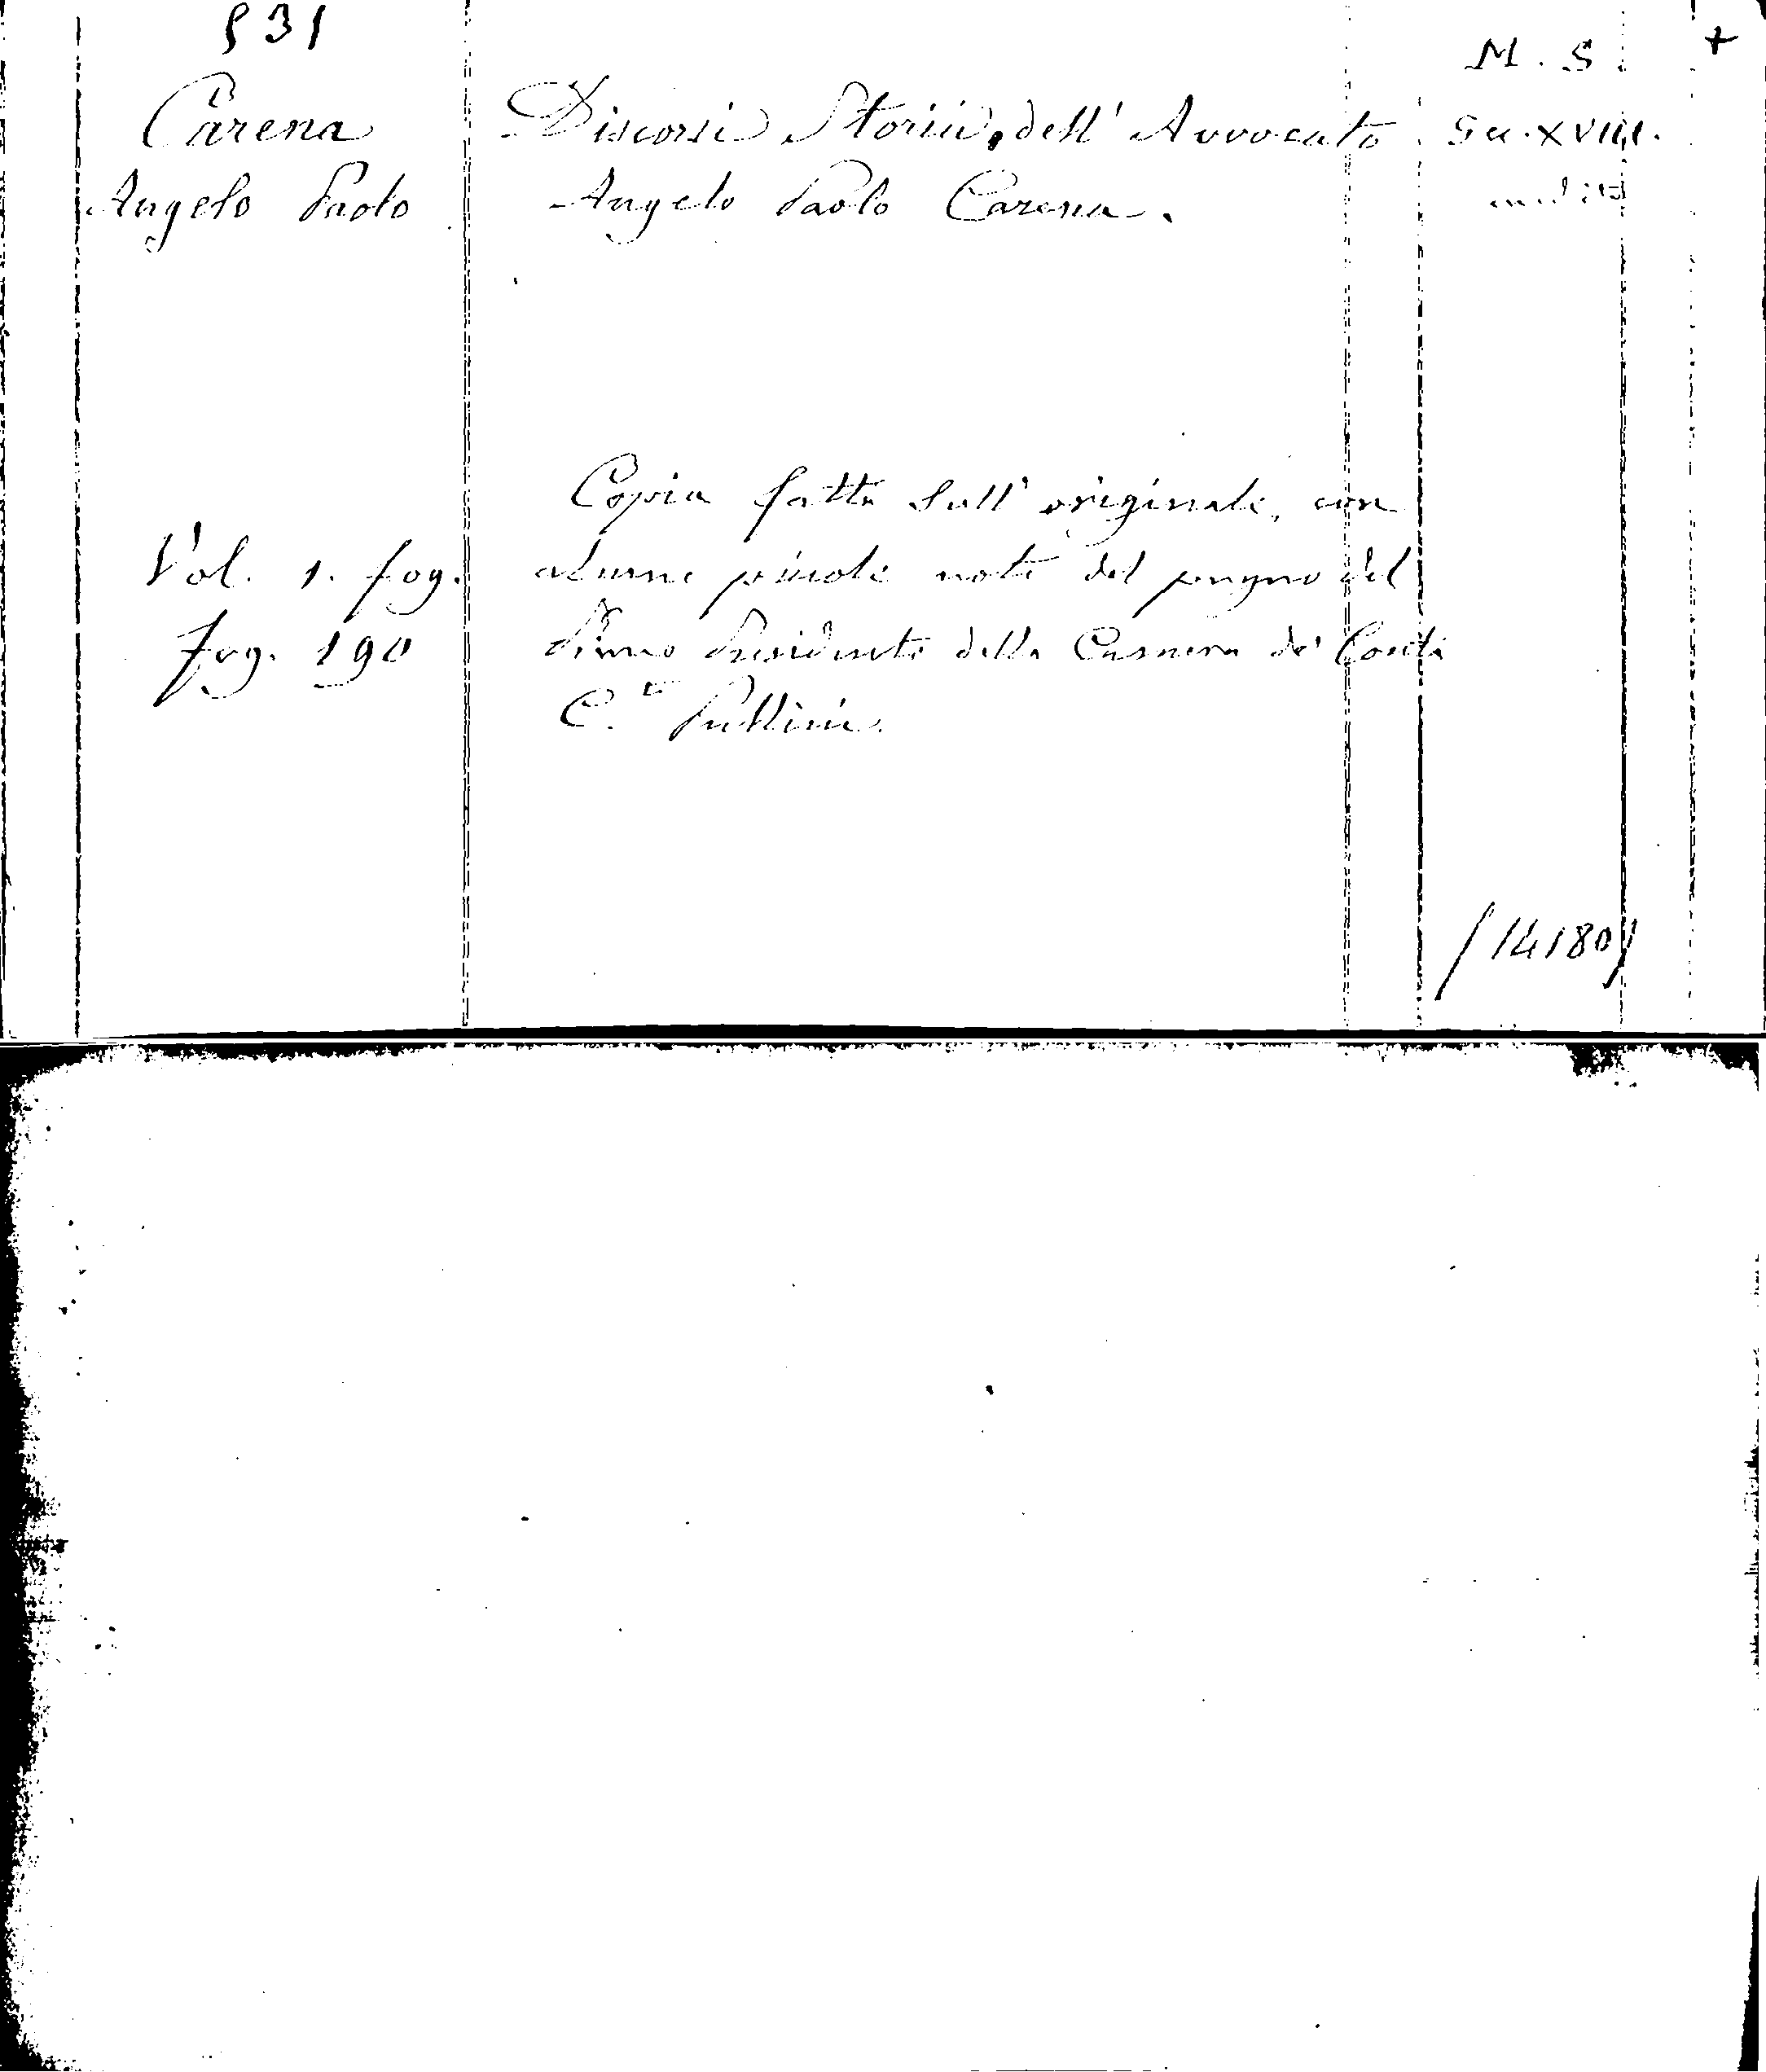 531
M. S. +
Carena
Angelo Paolo
Discorsi Storici, dell' Avvocato
Angelo Paolo Carena.
Sec. XVIII.
inedito
Vol. 1. fog.
fog. 190
Copia fatta sull' originale, con
alcune piccole note del pugno del
Primo Presidente della Camera de' Conti
C.te Pullini.
/14180/